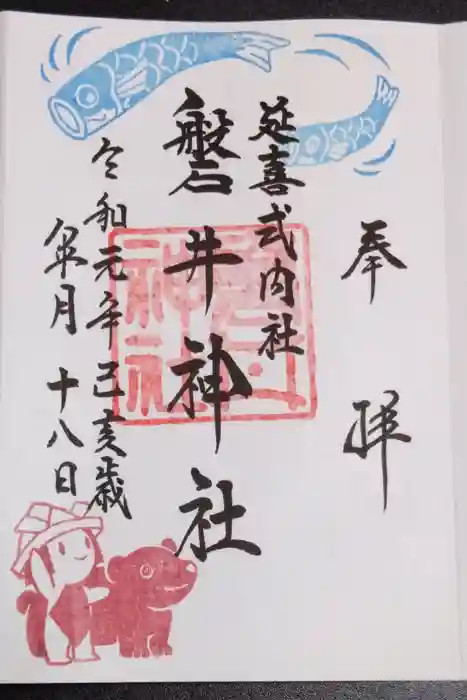 奉拝
延喜式内社
磐井神社
令和元年己亥歳
皐月十八日